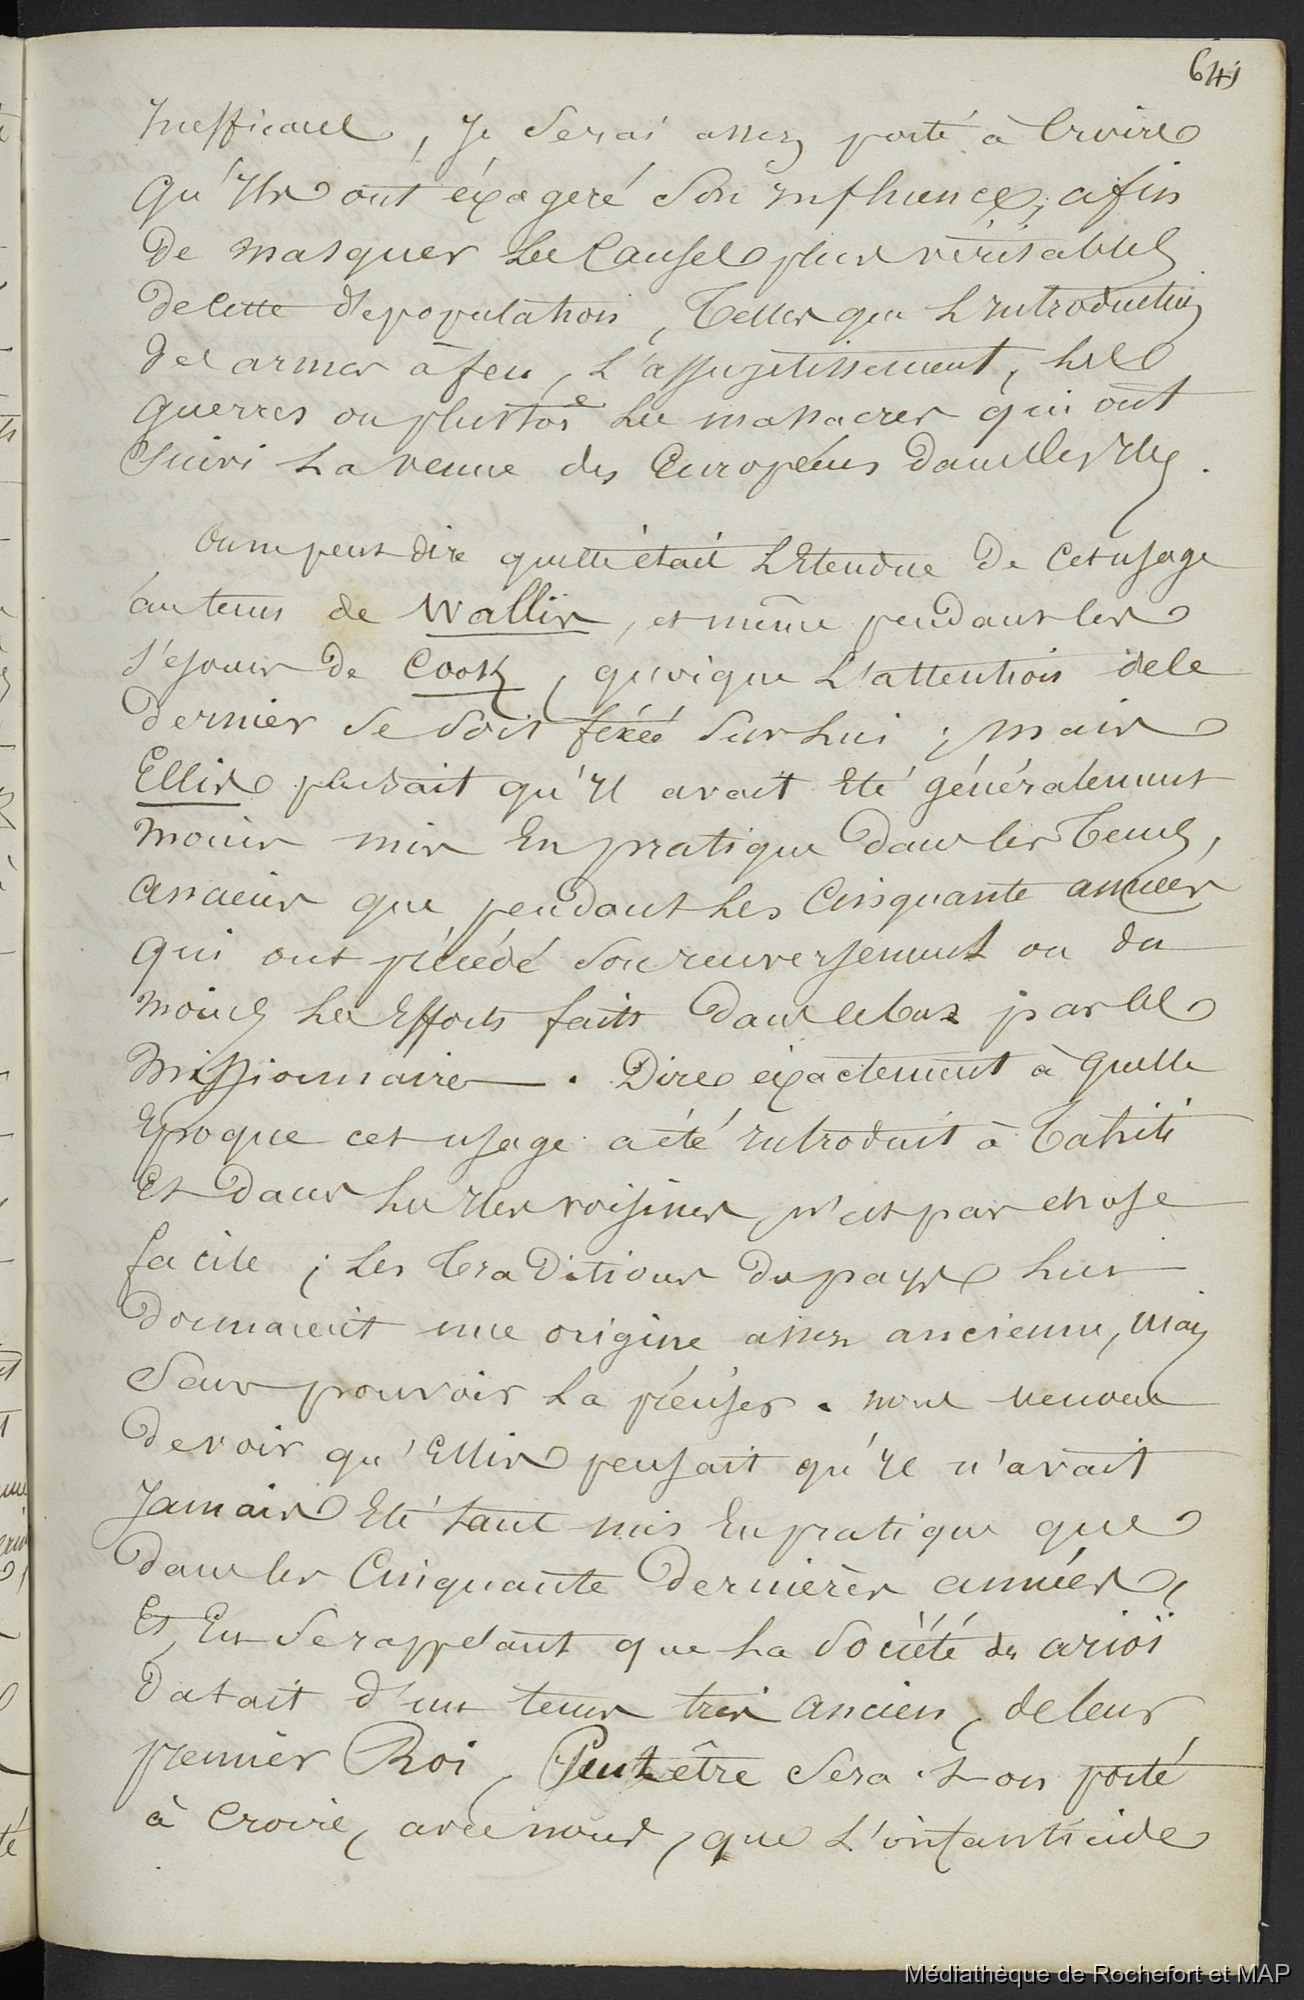 641
Inefficaces, Je Serai assez porté à Croire
Qu'Ils ont éxageré Son influence; afin
De masquer Les Causes plus véritables
De Cette dépopulation, Telles que L'introduction
des armes à feu, L'assujetissement, Les
Guerres ou plustos Les massacres qui ont
Suivi La venue des Européens dans Les Iles.
On ne peut dire quelle était L'Etendue De Cet usage
au tems de Wallis, et même pendant les
séjours De Cook, quoique L'attention de Ce
dernier Se Soit fixée Sur Lui; mais
Ellis pensait qu'Il avait Eté généralement
moins mis En pratique Dans les Tems,
anciens que pendant Les Cinquante années
qui ont précédé Son renversement ou du
moins Les Efforts faits Dans ce but par les
missionnaires. Dire éxactement à quelle
Epoque cet usage a été introduit à Tahiti
Et Dans Les Iles voisines, n'est pas chose
facile; Les Traditions du pays Lui
Donnaient une origine assez ancienne, mais
Sans pouvoir La préciser. nous venons
De voir qu'Ellis pensait qu'Il n'avait
Jamais Eté tant mis En pratique que
Dans les Cinquante Dernières années,
Et, En Se rappelant que La Société des arioï
Datait d'un tems très ancien, de leur
premier Roi, Peut être Sera-t-on porté
à Croire, avec nous, que L'infanticide
Médiathèque de Rochefort et MAP